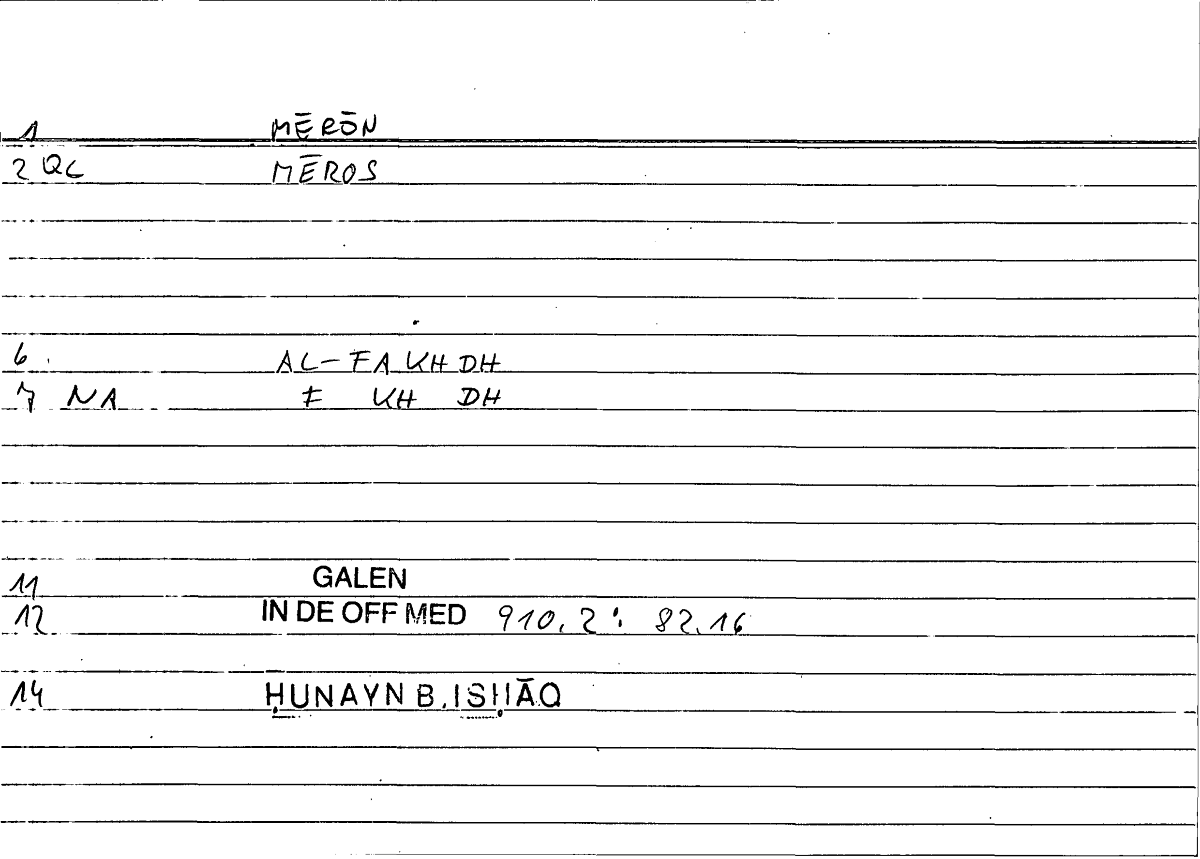 1 MĒRŌN
2 QC MĒROS
6. AL-FAKHDH
7 NA F KH DH
11 GALEN
12 IN DE OFF MED 910.2: 82.16
14 ḤUNAYN B. ISḤĀQ